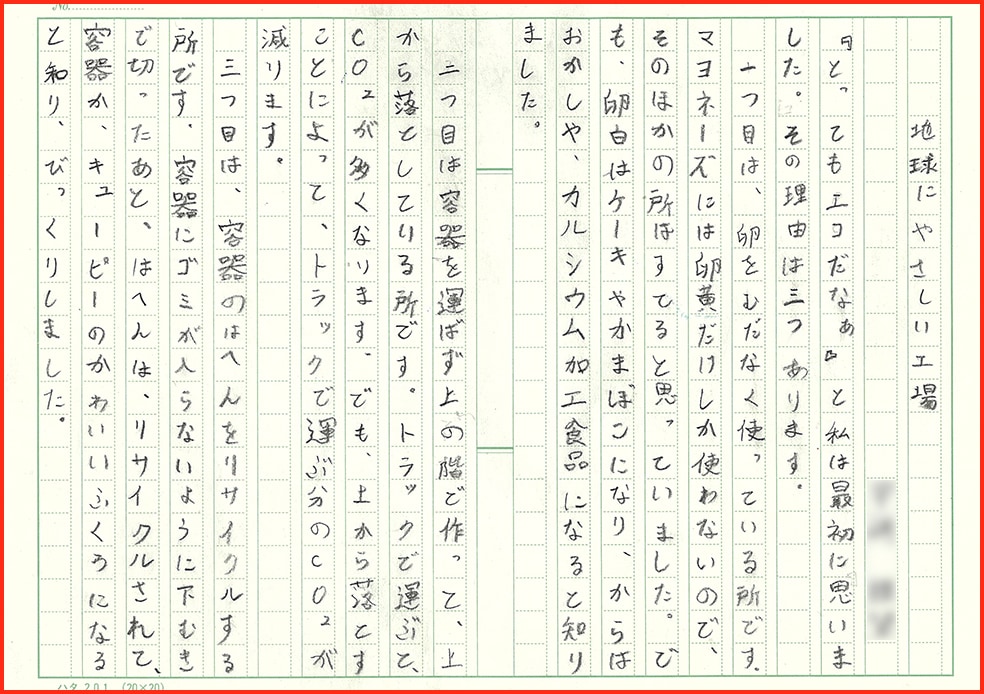 No.
地球にやさしい工場
「とってもエコだなぁ」と私は最初に思いま
した。その理由は三つあります。
一つ目は、卵をむだなく使っている所です。
マヨネーズには卵黄だけしか使わないので、
そのほかの所はすてると思っていました。で
も、卵白はケーキやかまぼこになり、からは
おかしや、カルシウム加工食品になると知り
ました。
二つ目は容器を運ばず上の階で作って、上
から落としてりる所です。トラックで運ぶと、
CO2が多くなります、でも、上から落とす
ことによって、トラックで運ぶ分のCO2が
減ります。
三つ目は、容器のはへんをリサイクルする
所です、容器にゴミが入らないように下むき
で切ったあと、はへんは、リサイクルされて、
容器か、キューピーのかわいいふくろになる
と知り、びっくりしました。
ハタ 201 (20×20)